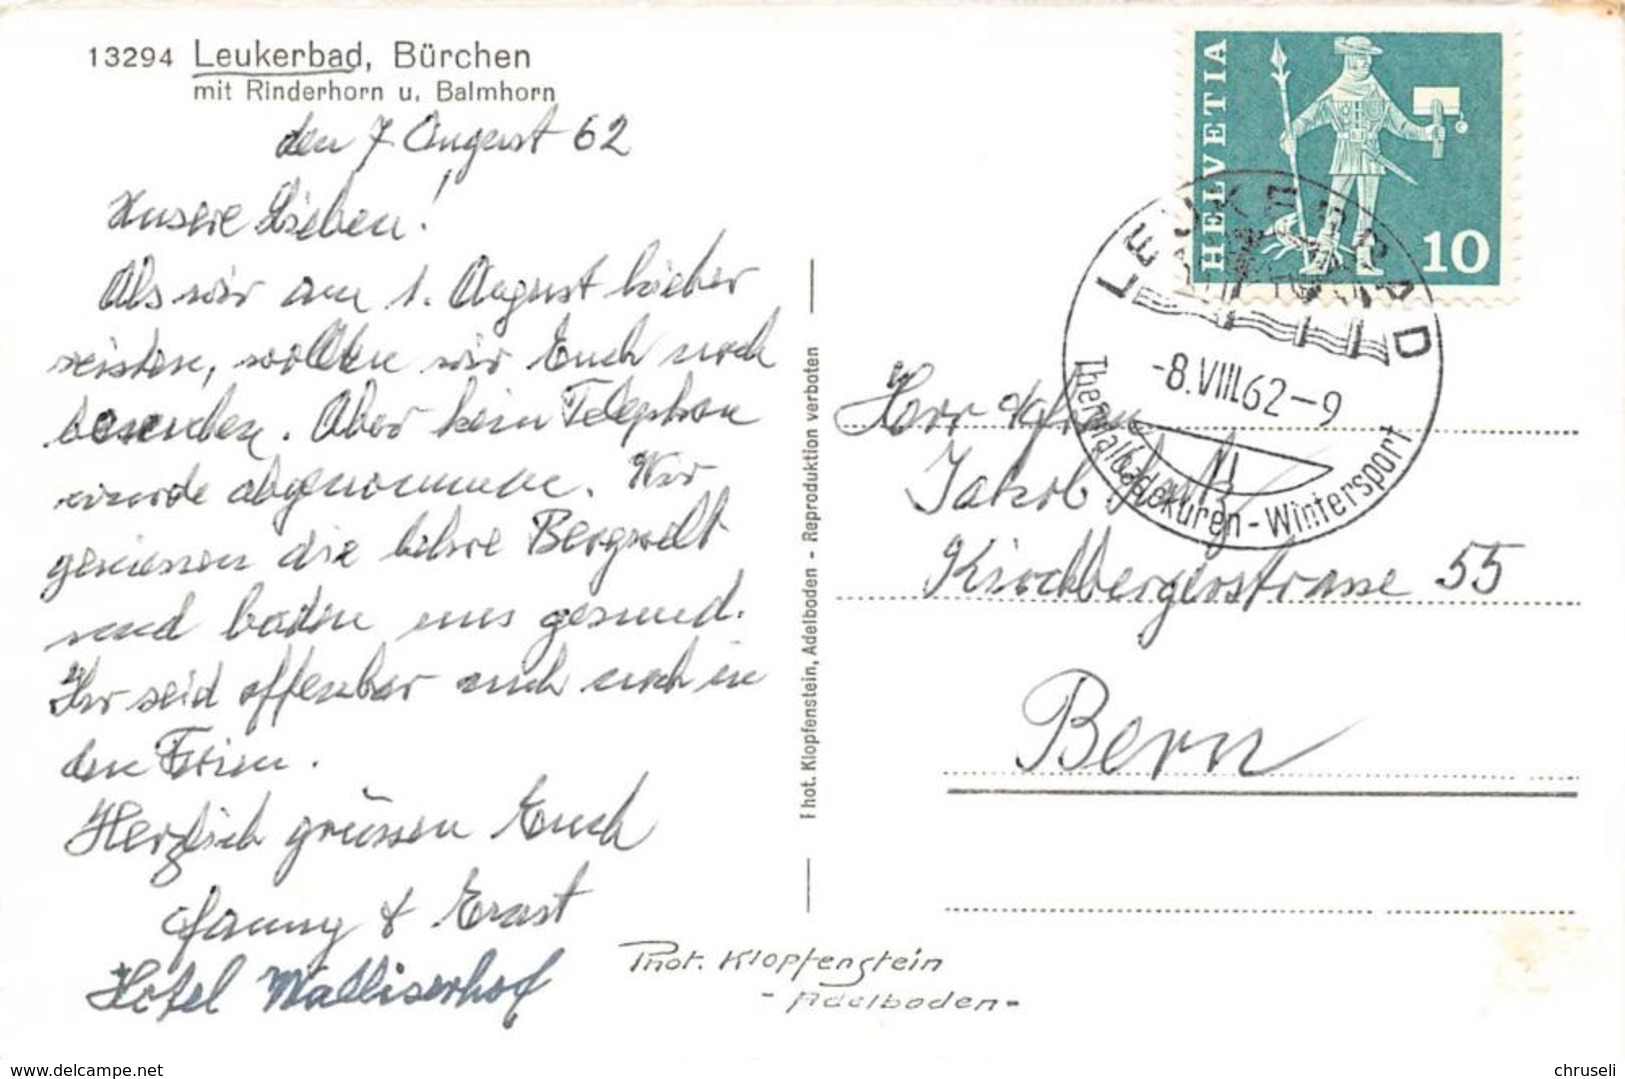 13294 Leukerbad, Bürchen
mit Rinderhorn u. Balmhorn
den 7. August 62
Unsere Lieben!
Als wir am 1. August hieher
reisten, wollten wir Euch noch
besuchen. Aber kein Telephon
wurde abgenommen. Wir
geniessen die hehre Bergwelt
und baden uns gesund.
Ihr seid offenbar auch noch in
den Ferien.
Herzlich grüssen Euch
Fanny & Ernst
Hotel Walliserhof
Phot. Klopfenstein, Adelboden - Reproduktion verboten
Phot. Klopfenstein
- Adelboden -
HELVETIA
10
LEUKERBAD
-8.VIII.62-9
Thermalbadekuren-Wintersport
Herr
Jakob
Kirchbergerstrasse 55
Bern
www.delcampe.net
chruseli